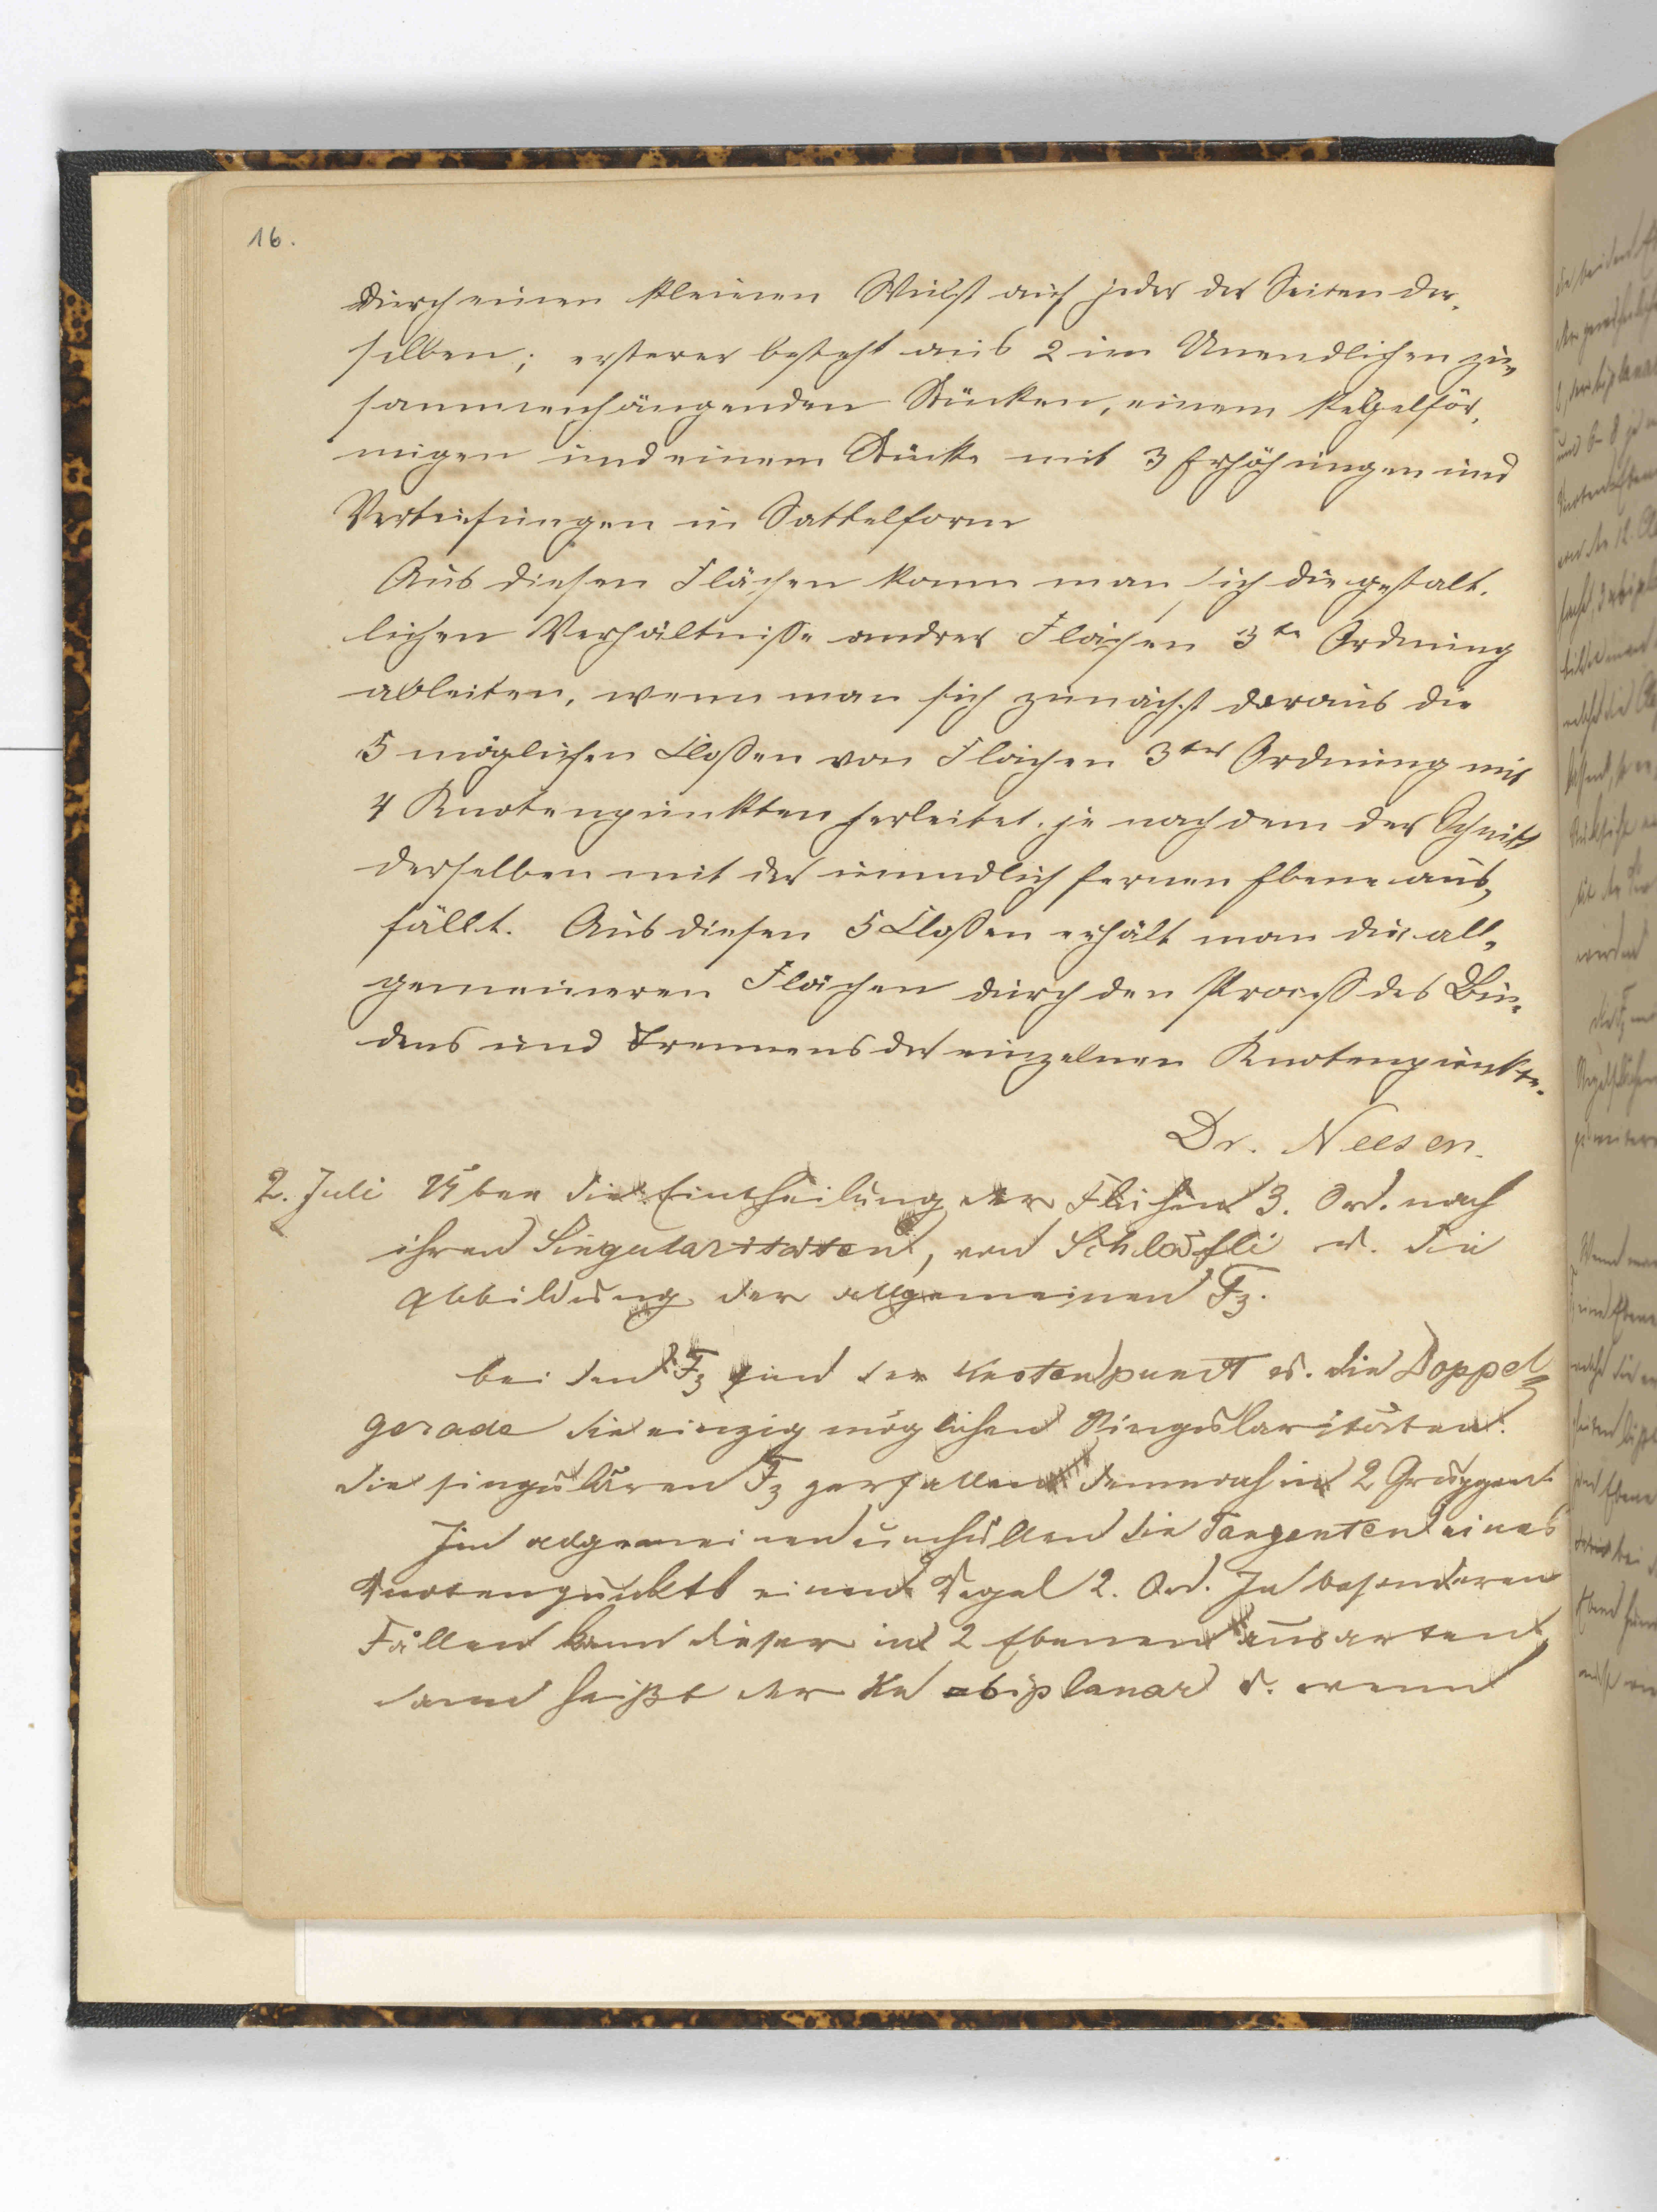 16.
durch einen kleinen Wulst auf jeder der Seiten der-
selben; ersterer besteht aus 2 im Unendlichen zu-
sammenhängenden Stücken, einem kegelför-
migen und einem Stücke mit 3 Erhöhungen und
Vertiefungen in Sattelform
Aus diesen Flächen kann man sich die gestalt-
lichen Verhältnisse andrer Flächen 3ter Ordnung
ableiten, wenn man sich zunächst daraus die
5 möglichen Classen von Flächen 3ter Ordnung mit
4 Knotenpunkten herleitet. je nachdem der Schnitt
derselben mit der unendlich fernen Ebene aus-
fällt. Aus diesen 5 Classen erhält man die all-
gemeineren Flächen durch den Process des Bin-
dens und Trennens der einzelnen Knotenpunkte.
Dr. Neesen.
2. Juli Über die Eintheilung der Flächen 3. Ord. nach
ihren Singularitäten, von Schläfli u. die
Abbildung der allgemeinen F3.
bei den F3 sind der Knotenpunct u. die Doppel-
gerade die einzig möglichen Singularitäten.
die singulären F3 zerfallen demnach in 2 Gruppen.
Im allgemeinen umhüllen die Tangenten eines
Knotenpunkts einen Kegel 2. Ord. In besonderen
Fällen kann dieser in 2 Ebenen ausarten,
dann heißt der Kn biplanar u. wenn